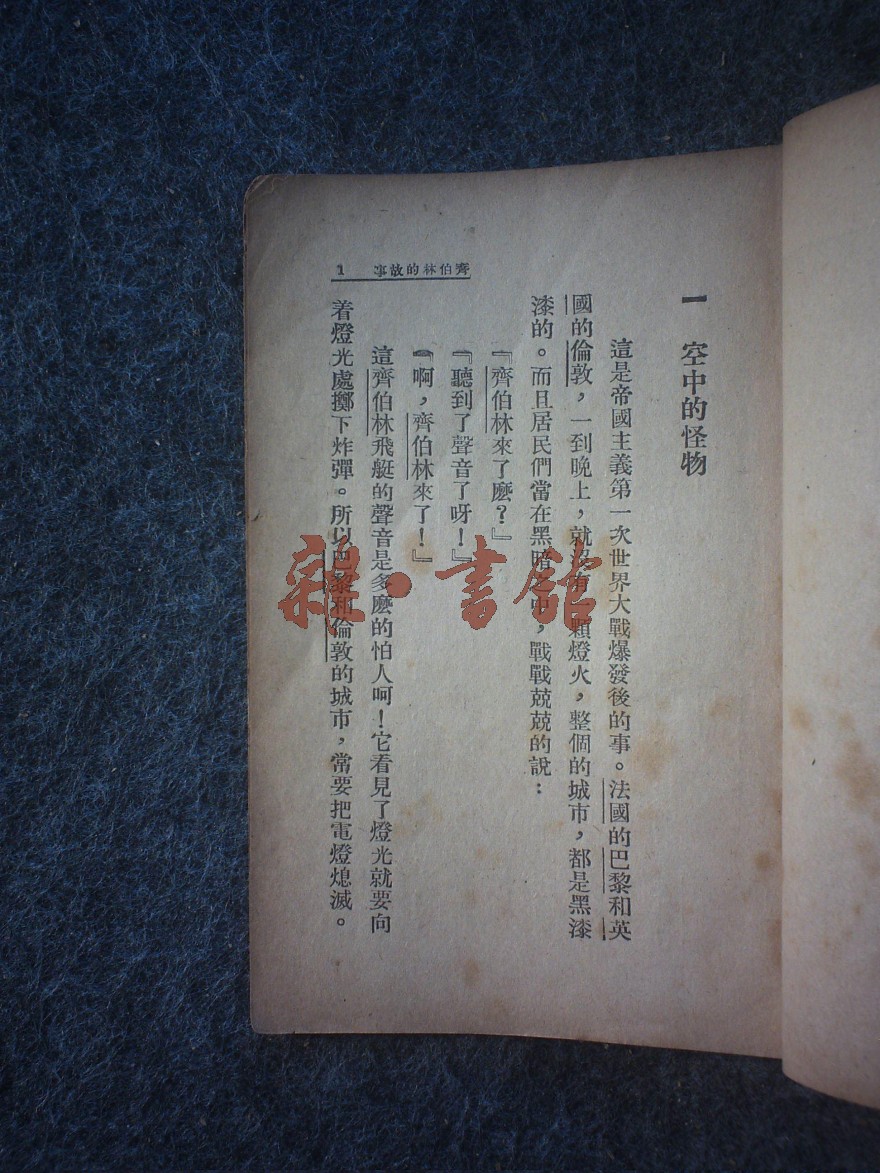 齊伯林的故事 1
一 空中的怪物
這是帝國主義第一次世界大戰爆發後的事。法國的巴黎和英
國的倫敦，一到晚上，就沒有一顆燈火，整個的城市，都是黑漆
漆的。而且居民們當在黑暗之中，戰戰兢兢的說：
『齊伯林來了麽？』
『聽到了聲音了呀！』
『啊，齊伯林來了！』
這齊伯林飛艇的聲音是多麽的怕人呵！它看見了燈光就要向
着燈光處擲下炸彈。所以巴黎和倫敦的城市，常要把電燈熄滅。
雜·書館